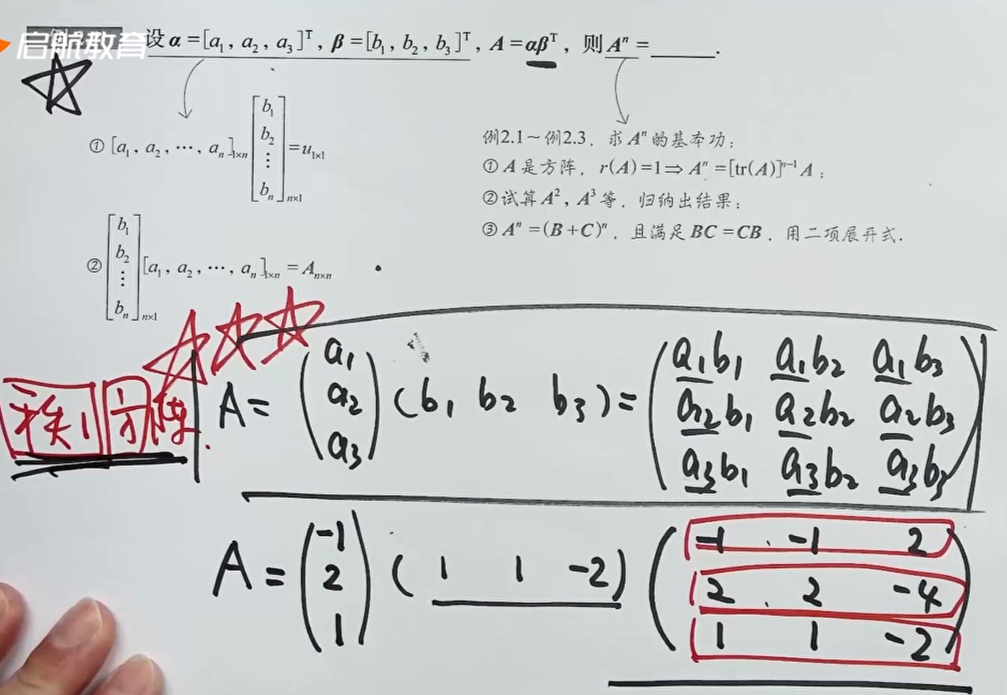 启航教育
设 α=[a₁, a₂, a₃]ᵀ, β=[b₁, b₂, b₃]ᵀ, A=αβᵀ, 则 Aⁿ=______.
① [a₁, a₂, ⋯, aₙ]₁ₓₙ [b₁ b₂ ⋮ bₙ]ₙₓ₁ = u₁ₓ₁
② [b₁ b₂ ⋮ bₙ]ₙₓ₁ [a₁, a₂, ⋯, aₙ]₁ₓₙ = Aₙₓₙ
例2.1~例2.3, 求 Aⁿ 的基本功:
① A 是方阵, r(A)=1⇒Aⁿ=[tr(A)]ⁿ⁻¹A;
② 试算 A², A³ 等, 归纳出结果;
③ Aⁿ=(B+C)ⁿ, 且满足 BC=CB, 用二项展开式.
秩1方阵
A= (a₁ a₂ a₃) (b₁ b₂ b₃)= (a₁b₁ a₁b₂ a₁b₃
a₂b₁ a₂b₂ a₂b₃
a₃b₁ a₃b₂ a₃b₃)
A= (-1 2 1) (1 1 -2) (-1 -1 2
2 2 -4
1 1 -2)